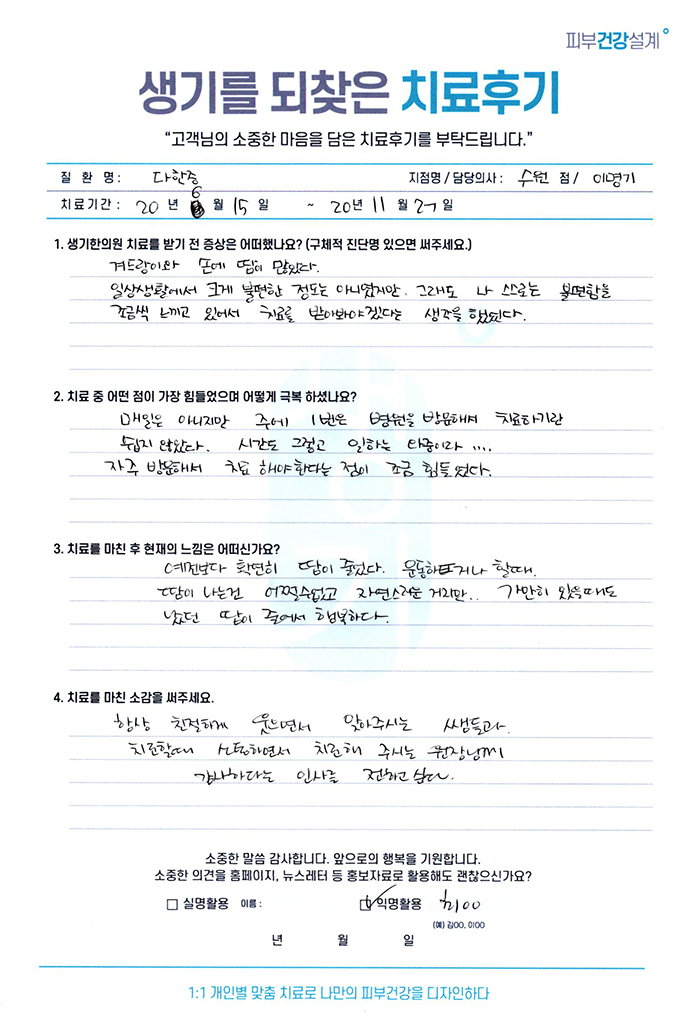 피부건강설계
생기를 되찾은 치료후기
“고객님의 소중한 마음을 담은 치료후기를 부탁드립니다.”
질 환 명 : 다한증 지점명 / 담당의사 : 수원 점 / 이명기
치료기간 : 20 년 6 월 15 일 ~ 20년 11 월 27 일
1. 생기한의원 치료를 받기 전 증상은 어떠했나요? (구체적 진단명 있으면 써주세요.)
겨드랑이와 손에 땀이 많았다.
일상생활에서 크게 불편한 정도는 아니였지만. 그래도 나 스스로는 불편함을
조금씩 느끼고 있어서 치료를 받아봐야겠다는 생각을 했었다.
2. 치료 중 어떤 점이 가장 힘들었으며 어떻게 극복 하셨나요?
매일은 아니지만 주에 1번은 병원을 방문해서 치료하기란
쉽지 않았다. 시간도 그렇고 일하는 타중이라 ....
자주 방문해서 치료 해야한다는 점이 조금 힘들었다.
3. 치료를 마친 후 현재의 느낌은 어떠신가요?
예전보다 확연히 땀이 줄었다. 운동하거나 할때.
땀이 나는건 어쩔수없고 자연스러운 거지만.. 가만히 있을때도
났던 땀이 줄어서 행복하다.
4. 치료를 마친 소감을 써주세요.
항상 친절하게 웃으면서 맞아주시는 쌤들과.
치료할때 스몰톡하면서 치료해 주시는 원장님께
감사하다는 인사를 전하고 싶다.
소중한 말씀 감사합니다. 앞으로의 행복을 기원합니다.
소중한 의견을 홈페이지, 뉴스레터 등 홍보자료로 활용해도 괜찮으신가요?
실명활용 이름 : 익명활용 최00
(예) 김00, 이00
년 월 일
1:1 개인별 맞춤 치료로 나만의 피부건강을 디자인하다